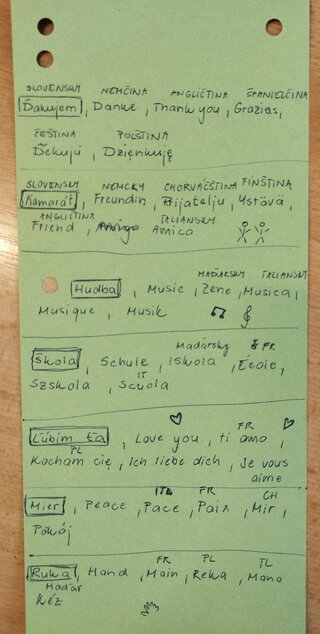 SLOVENSKY NEMČINA ANGLIČTINA ŠPANIELČINA
Ďakujem, Danke, Thank you, Grazias,
ČEŠTINA POĽŠTINA
Děkuji, Dzienkuję
SLOVENSKY NEMCKY CHORVÁČŠTINA FÍNŠTINA
Kamarát, Freundin, Prijatelju, Ystävä,
ANGLICTINA TALIANSKY
Friend, Amico
MAĎARSKY TALIANSKY
Hudba, Music, Zene, Musica,
Musique, Musik
Maďarsky FR
Škola, Schule, Iskola, École,
IT
Szskola, Scuola
FR
Ľúbim ťa, Love you, ti amo,
PL
Kocham cię, Ich liebe dich, Je vous
aime
ITA FR CH
Mier, Peace, Pace, Paix, Mir,
Pokój
FR PL TL
Ruka, Hand, Main, Reka, Mano
MAĎAR
Kéz